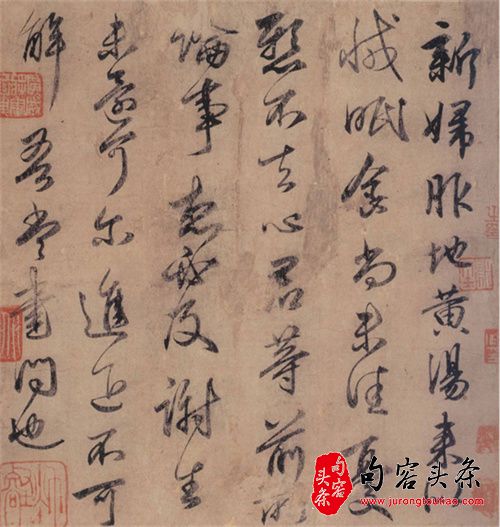 新婦服地黄湯来似
減眠食尚未佳憂
懸不去心君等前所
論事想必及謝生
未還可尔進退不可
解吾當書問也
句容头条
句容头条
www.jurongtoutiao.com